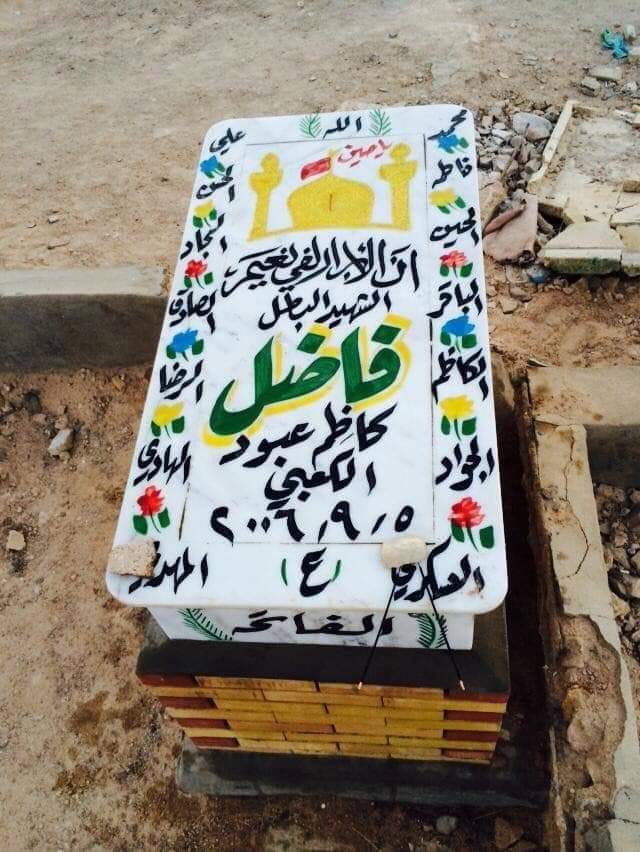 الله
محمد
علي
فاطمة
الحسن
الحسين
السجاد
الباقر
الصادق
الكاظم
الرضا
الجواد
الهادي
العسكري
المهدي
ياحسين
ان الابرار لفي نعيم
الشهيد البطل
فاضل
كاظم عبود
الكعبي
٢٠٠٦/٩/٥
(ع)
الفاتحة